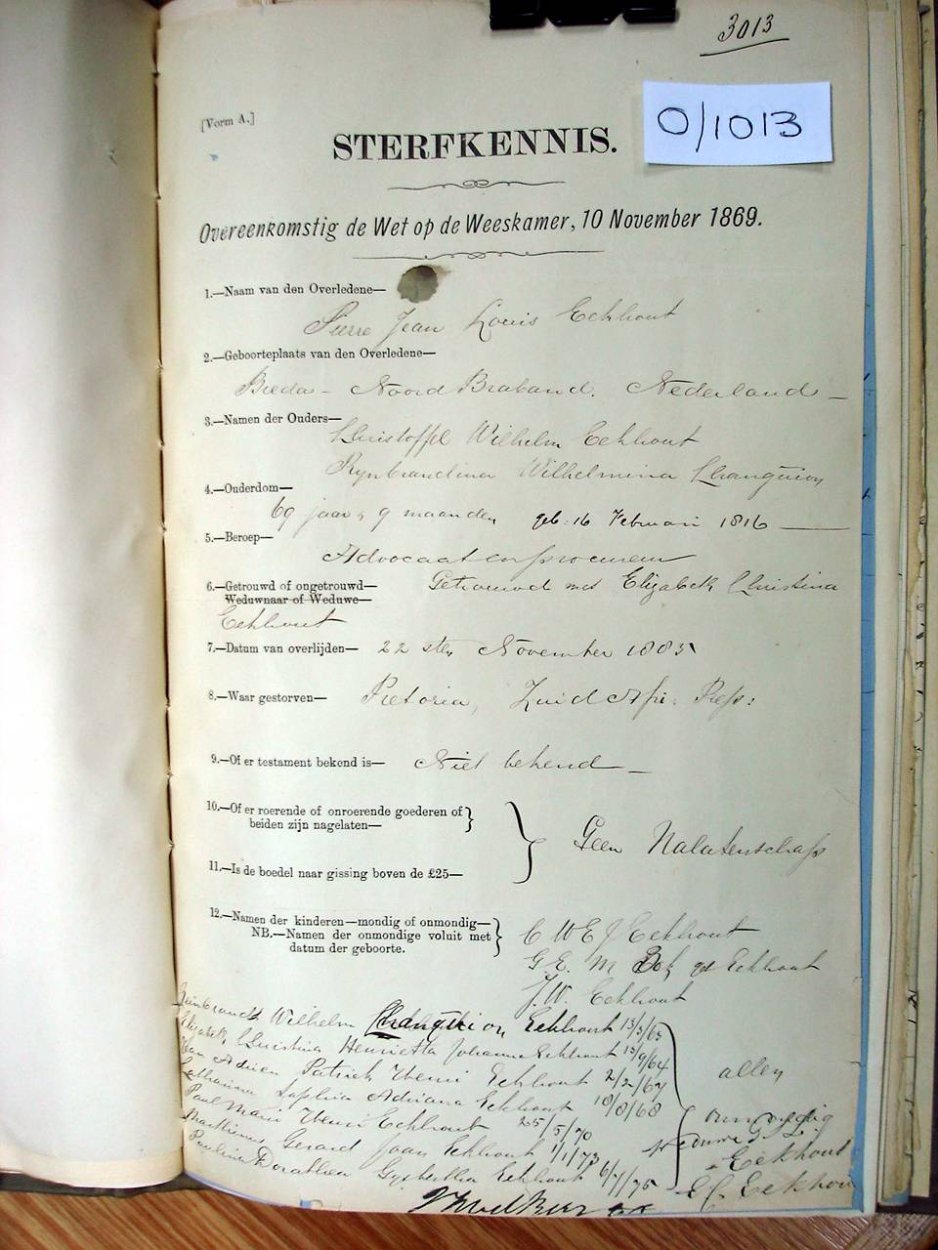 3013
O/1013
[Vorm A.]
STERFKENNIS.
Overeenkomstig de Wet op de Weeskamer, 10 November 1869.
1.—Naam van den Overledene—
Pierre Jean Louis Eckhout
2.—Geboorteplaats van den Overledene—
Breda - Noord Braband. Nederlands
3.—Namen der Ouders—
Christoffel Wilhelm Eckhout
Rynbrandina Wilhelmina Changuion
4.—Ouderdom—
69 jaar, 9 maanden geb: 16 Februari 1816
5.—Beroep—
Advocaat en procureur
6.—Getrouwd of ongetrouwd— Getrouwd met Elizabeth Christina
Weduwnaar of Weduwe—
Eckhout
7.—Datum van overlijden— 22 sten November 1885
8.—Waar gestorven— Pretoria, Zuid Afri: Rep:
9.—Of er testament bekend is— Niet bekend
10.—Of er roerende of onroerende goederen of
beiden zijn nagelaten—
Geen Nalatenschap
11.—Is de boedel naar gissing boven de £25—
12.—Namen der kinderen—mondig of onmondig—
NB.—Namen der onmondige voluit met
datum der geboorte.
C W E J Eckhout
G. E. M Bok Eckhout
J. W. Eckhout
Wilhelm Changuion Eckhout 13/3/63
Christina Henrietta Johanna Eckhout 13/9/64
Adrien Patrick Henri Eckhout 2/2/67
Catharina Sophia Adriana Eckhout 18/8/68
Paul Marie Henri Eckhout 25/5/70
Marthinus Gerard Joan Eckhout 1/1/73
Paulina Dorathea Eckhout 6/7/75
allen
onmondig
Eckhout
E C Eckhout